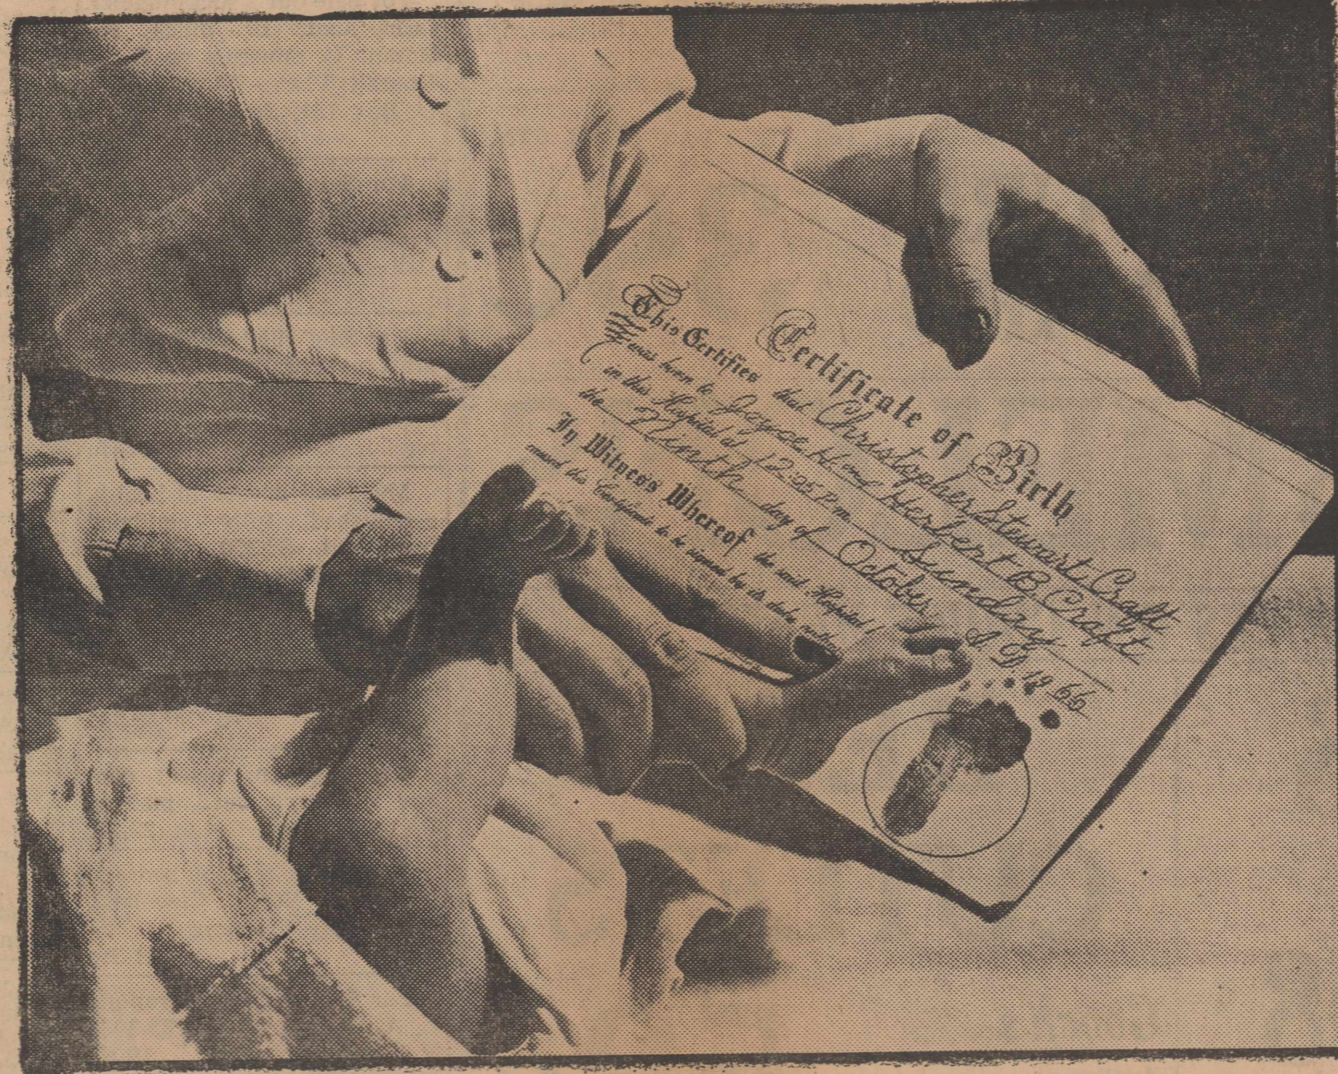 Certificate of Birth
This Certifies that Christopher Stewart Craft
was born to Joyce H. and Herbert B. Craft
in this Hospital at 12:25 P.m. Sunday
the Ninth day of October A D 1966
In Witness Whereof the said Hospital
caused this Certificate to be signed by its duly